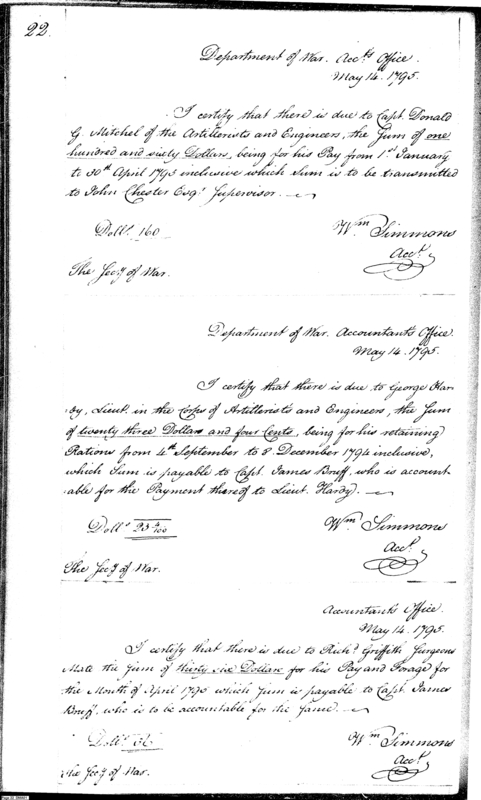 22.
Department of War. Acctˢ Office.
May 14. 1795.
I certify that there is due to Capt. Donald
G. Mitchel of the Artillerists and Engineers, the Sum of one
hundred and sixty Dollars, being for his Pay from 1ˢᵗ January
to 30ᵗʰ April 1795 inclusive which Sum is to be transmitted
to John Chester Esqʳ Supervisor.
Dollˢ 160
Wᵐ Simmons
Accᵗ
The Secʸ of War.
Department of War. Accountant's Office.
May 14. 1795.
I certify that there is due to George Har-
dy, Lieut. in the Corps of Artillerists and Engineers, the Sum
of twenty three Dollars and four Cents, being for his retaining
Rations from 4ᵗʰ September to 8 December 1794 inclusive,
which Sum is payable to Capt. James Bruff, who is account-
able for the Payment thereof to Lieut. Hardy.
Dollˢ 23 4/100
Wᵐ Simmons
Accᵗ
The Secʸ of War.
Accountant's Office.
May 14. 1795.
I certify that there is due to Richᵈ Griffith Surgeons
Mate the Sum of thirty six Dollars for his Pay and Forage for
the Month of April 1795 which Sum is payable to Capt. James
Bruff. who is to be accountable for the Same.
Dollˢ 36
Wᵐ Simmons
Accᵗ
The Secʸ of War.